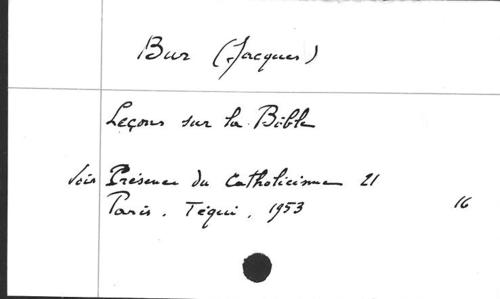 Bur (Jacques)
Leçons sur la Bible
Voir Présence du Catholicisme 21
Paris. Téqui. 1953 16